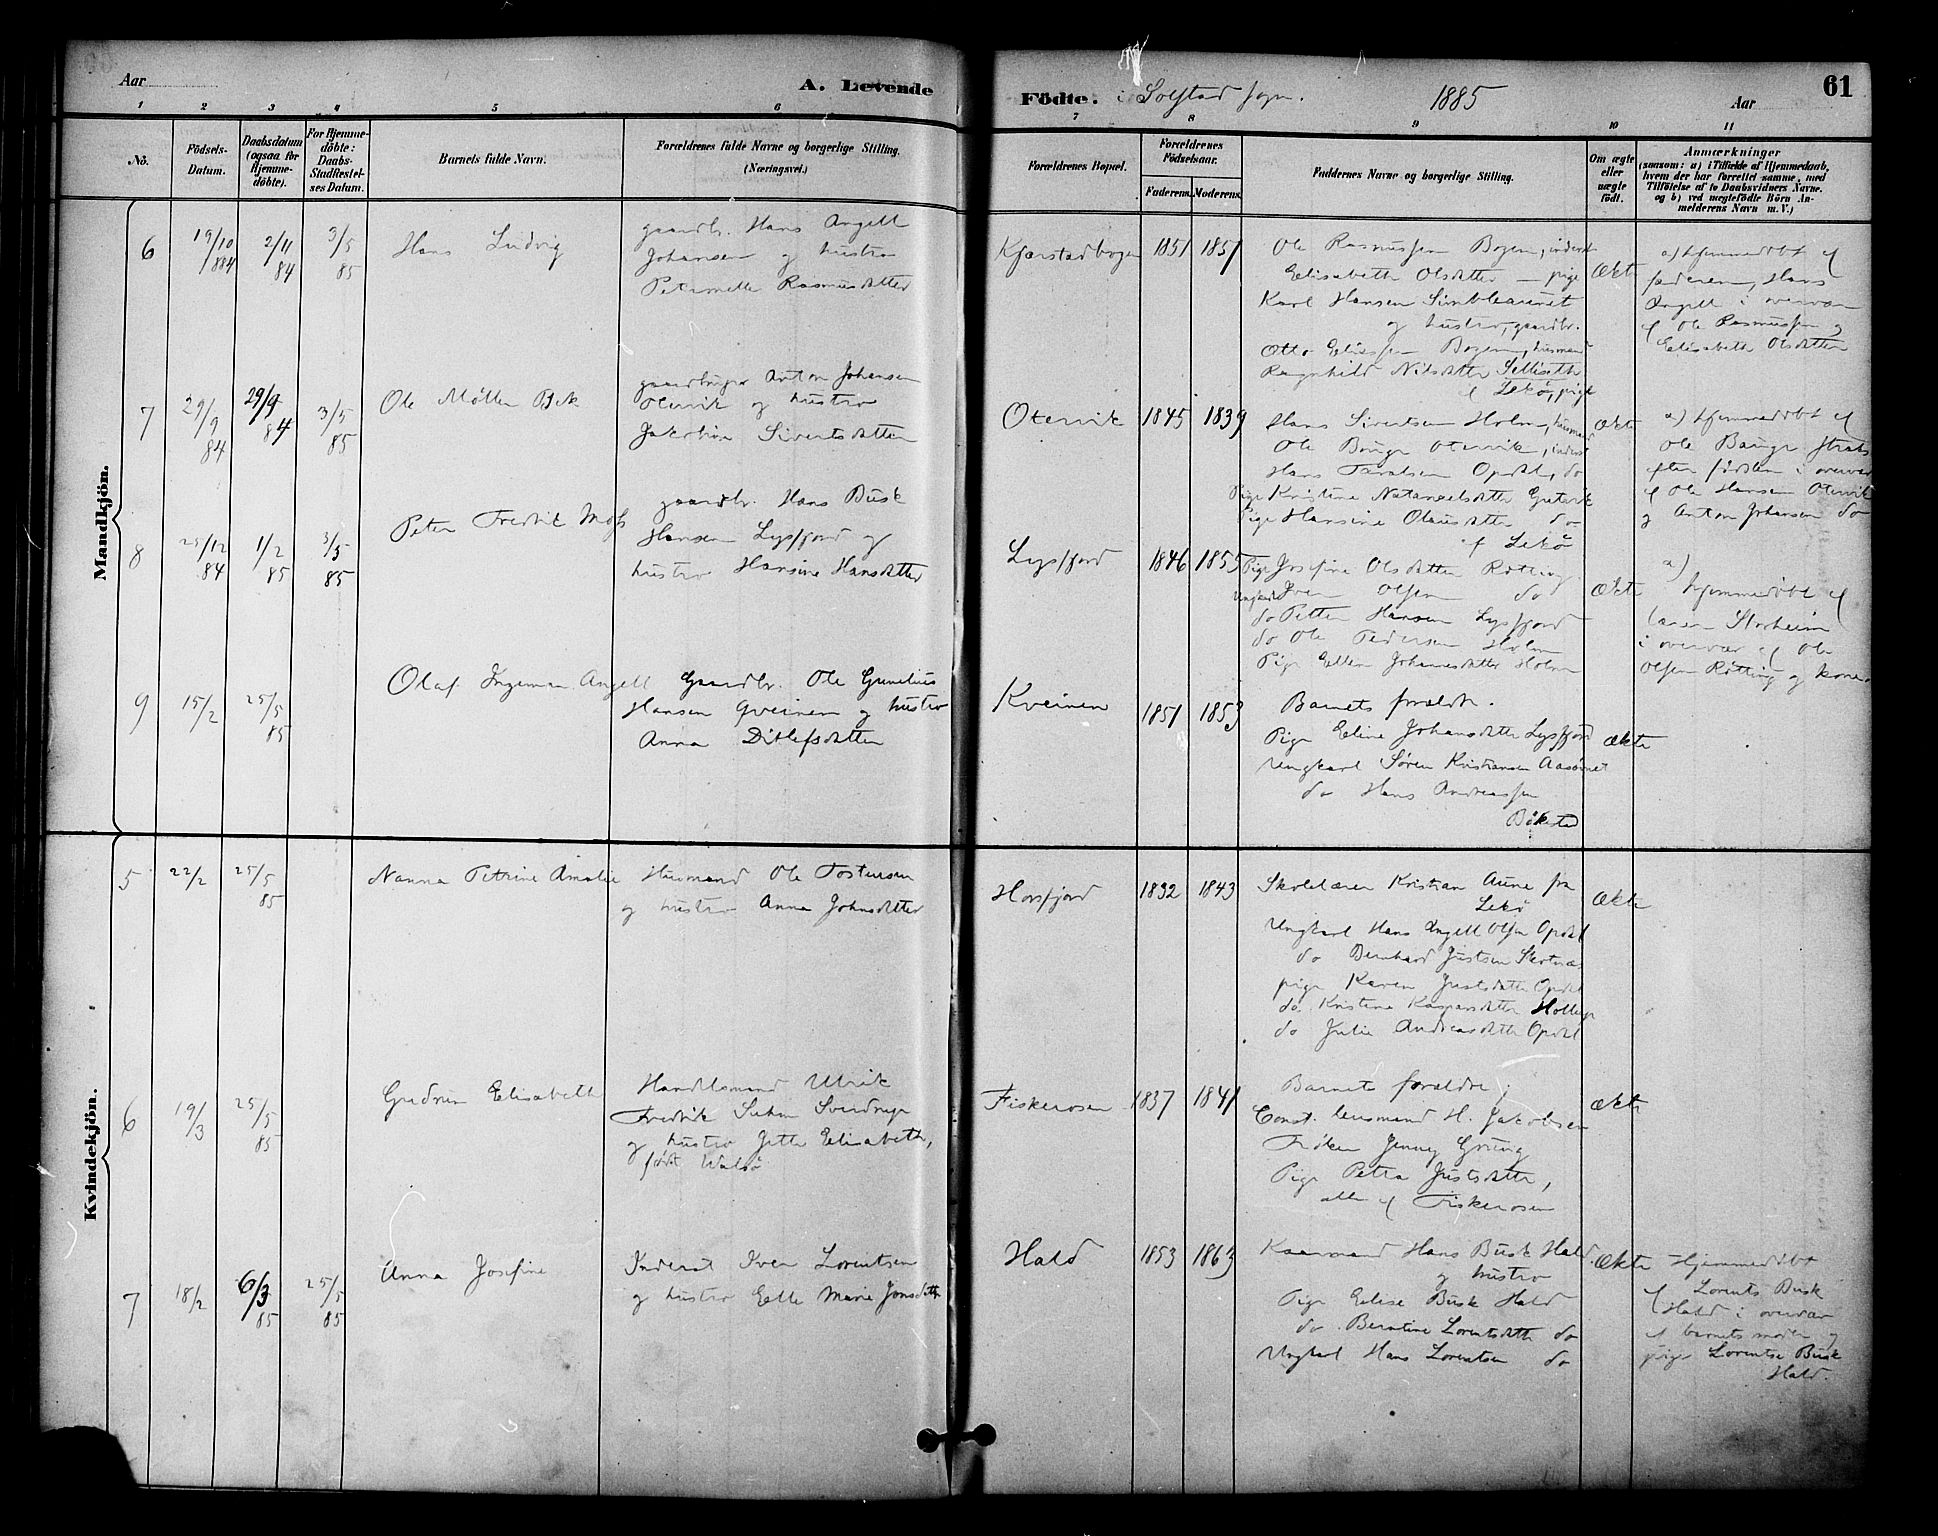 Aar
A. Levende
Födte. i Solstad sogn. 1885 Aar
61
1 2 3 4 5 6 7 8 9 10 11
No.
Födsels-
Datum.
Daabsdatum
(ogsaa for
Hjemme-
döbte).
For Hjemme-
döbte:
Daabs-
Stadfæstel-
ses Datum.
Barnets fulde Navn.
Forældrenes fulde Navne og borgerlige Stilling.
(Næringsvei.)
Forældrenes Bopæl.
Forældrenes
Födselsaar.
Faderens. Moderens.
Faddernes Navne og borgerlige Stilling.
Om ægte
eller
uægte
födt.
Anmærkninger
(saasom: a) i Tilfælde af Hjemmedaab,
hvem der har forrettet samme, med
Tilföielse af to Daabsvidners Navne.
og b) ved uægtefödte Börn An-
melderens Navn m. V.)
Mandkjön.
6
19/10 884
2/11 84
3/5 85
Hans Ludvig
gaardbr. Hans Angell
Johansen og hustro
Petternelle Rasmusdatter
Kjærstadbogen
1851 1851
Ole Rasmussen Bogen, inderst
Elisabeth Olsdatter — pige
Karl Hansen Simleauret
og hustro, gaardbr.
Otto Eliassen Bogen, husmand
Ragnhild Nilsdatter Sellisøth
af Lekø, pige
Ækte
a) Hjemmedöbt af
faderen, Hans
Angell i overvær
af Ole Rasmussen og
Elisabeth Olsdatter
7
29/9 84
29/9 84
3/5 85
Ole Møller Bek
gaardbruger Anton Johansen
Otervik og hustro
Jakobine Sivertsdatter
Otervik
1845 1839
Hans Sivertsen Holm, husmand
Ole Bauge Otervik, inderst
Hans Taralsen Opdal, do
Pige Kristine Natanaelsdatter Gutvik
Pige Hansine Olausdatter do
af Lekø
Ækte
a) Hjemmedöbt af
Ole Bauge straks
efter födslen i overvær
af Ole Hansen Otervik
og Anton Johansen do
8
25/12 84
1/2 85
3/5 85
Peter Fredrik Moss
gaardbr. Hans Busk
Hansen Lysfjord og
hustro Hansine Hansdatter
Lysfjord
1846 1855
Pige Josefine Olsdatter Røtting
Ungkarl Iver Olsen do
do Petter Hansen Lysfjord
do Ole Pedersen Holm
Pige Ellen Johannesdatter Holm
Ækte
a)
Hjemmedöbt af
lærer Storheim
i overvær af Ole
Olsen Røtting og kone
9
15/2
25/5 85
Olaf Ingeman Angell
Gaardbr. Ole Gunelius
Hansen Qveinen og hustro
Anna Ditlefsdatter
Kveinen
1851 1853
Barnets forældre.
Pige Eline Johansdatter Lysfjord
Ungkarl Søren Kristiansen Aasörnet
do Hans Andreassen
Bökestad
Ækte
Kvindekjön.
5
22/2
25/5 85
Nanna Petrine Amalie
Husmand Ole Tostensen
og hustro Anna Johnsdatter
Horsfjord
1832 1843
Skolelærer Kristian Aune fra
Lekø
Ungkarl Hans Angell Olsen Opdal
do Bernhard Justsen Skotnæs
pige Karen Justsdatter Opdal
do Kristine Kaspersdatter Hollup
do Julie Andreasdatter Opdal
Ækte
6
19/3
25/5 85
Gudrun Elisabeth
Handelsmand Ulrik
Fredrik Suhm Sverdrup
og hustro Jette Elisabeth,
født Walsø
Fiskerosen
1837 1841
Barnets forældre.
Const. lensmand H. Jakobsen
Frøken Jenny Grung
Pige Petra Justsdatter,
alle af Fiskerosen
Ækte
7
18/2
6/3 85
25/5 85
Anna Josefine
Inderst Iver Lorentsen
og hustro Elle Marie Jonsdatter
Hald
1853 1863
Kaarmand Hans Busk Hald
og hustro
Pige Elise Busk Hald
do Berntine Lorentsdatter do
Ungkarl Hans Lorentsen do
Ækte
Hjemmedöbt
af Lorents Busk
Hald i overvær
af barnets moder og
pige Lorentse Busk
Hald.